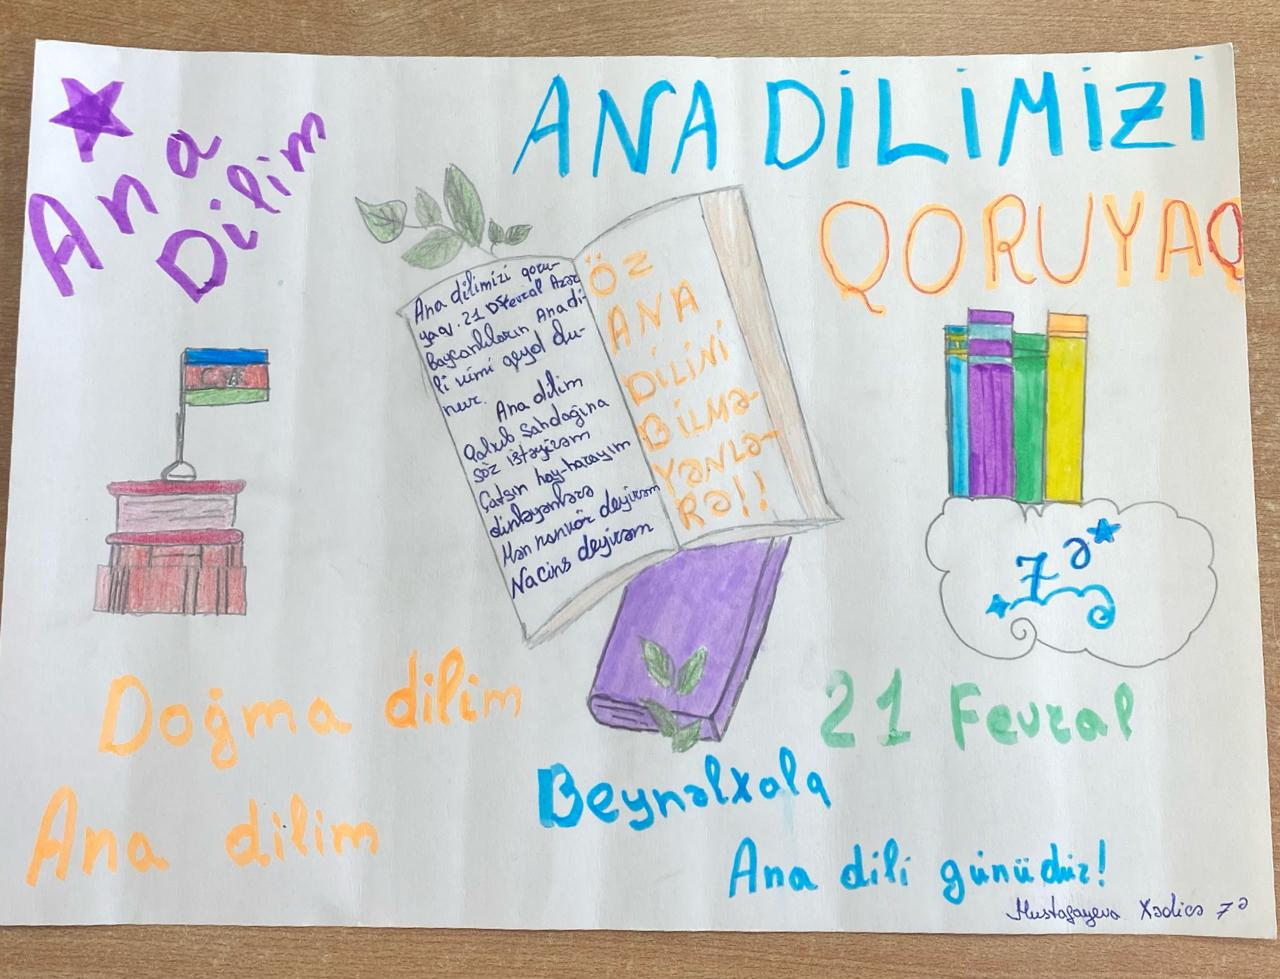 Ana
Dilim
ANA DİLİMİZİ
QORUYAQ
Ana dilimizi qoru-
yaq. 21 Fevral Azər
baycanlıların Ana di-
li kimi qeyd olu-
nur.
Ana dilim
Qalxıb Şahdağına
söz istəyirəm
Çatsın hay-harayım
dinləyənlərə
Mən nankor deyirəm
Nacins deyirəm
ÖZ
ANA
DİLİNİ
BİLMƏ-
YƏNLƏ-
RƏ!!
7ə
Doğma dilim
Ana dilim
21 Fevral
Beynəlxalq
Ana dili günüdür!
Mustafayeva Xədicə 7ə